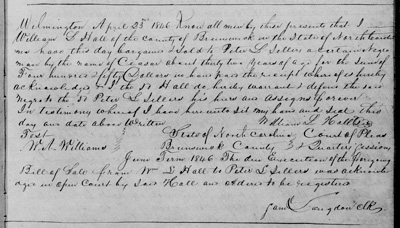 Wilmington April 23d 1846 Know all men by these presents that I
William L Hall of the County of Brunswick in the State of North Carolina
have this day bargained & Sold to Peter L Sellers a Certain negro
man by the name of Ceasar about thirty two years of age for the Sum of
Four hundred & fifty Dollars in hand paid the receipt whereof is hereby
acknowledged & I the Sd Hall do hereby warrant & defend the said
negro to the Sd Peter L Sellers his heirs and assigns forever
In testimony whereof I have hereunto set my hand and Seal this
day and date above written
William L Hall
Test State of North Carolina Court of Pleas
W. A. Williams Brunswick County & Quarter Sessions
June Term 1846 The due Execution of the foregoing
Bill of Sale from Wm L Hall to Peter L Sellers was acknow
ledged in open Court by Said Hall and ordered to be registered
Langdon Clk